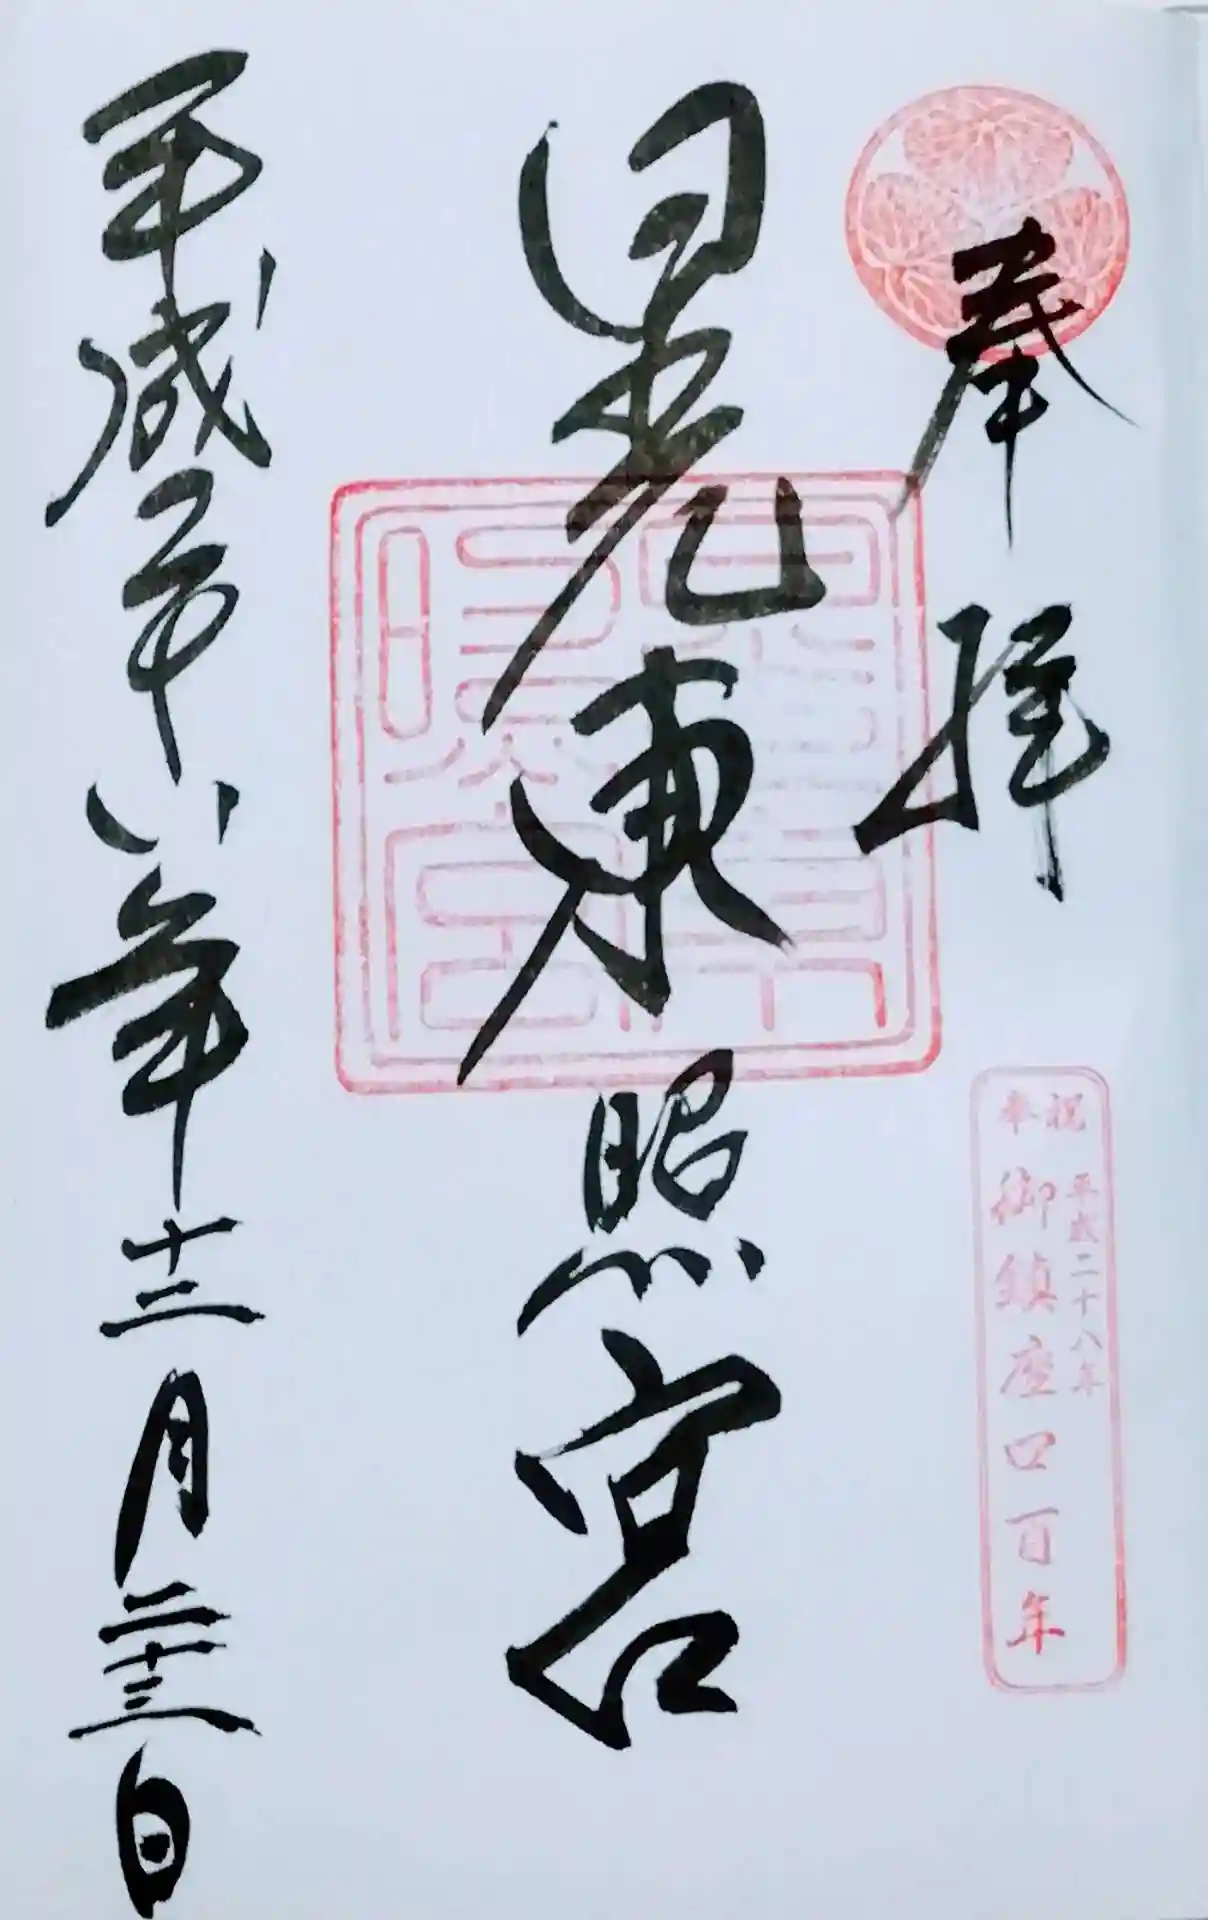 奉拝
奉祝
平成二十八年
御鎮座四百年
日光東照宮
平成二十八年十二月二十三日